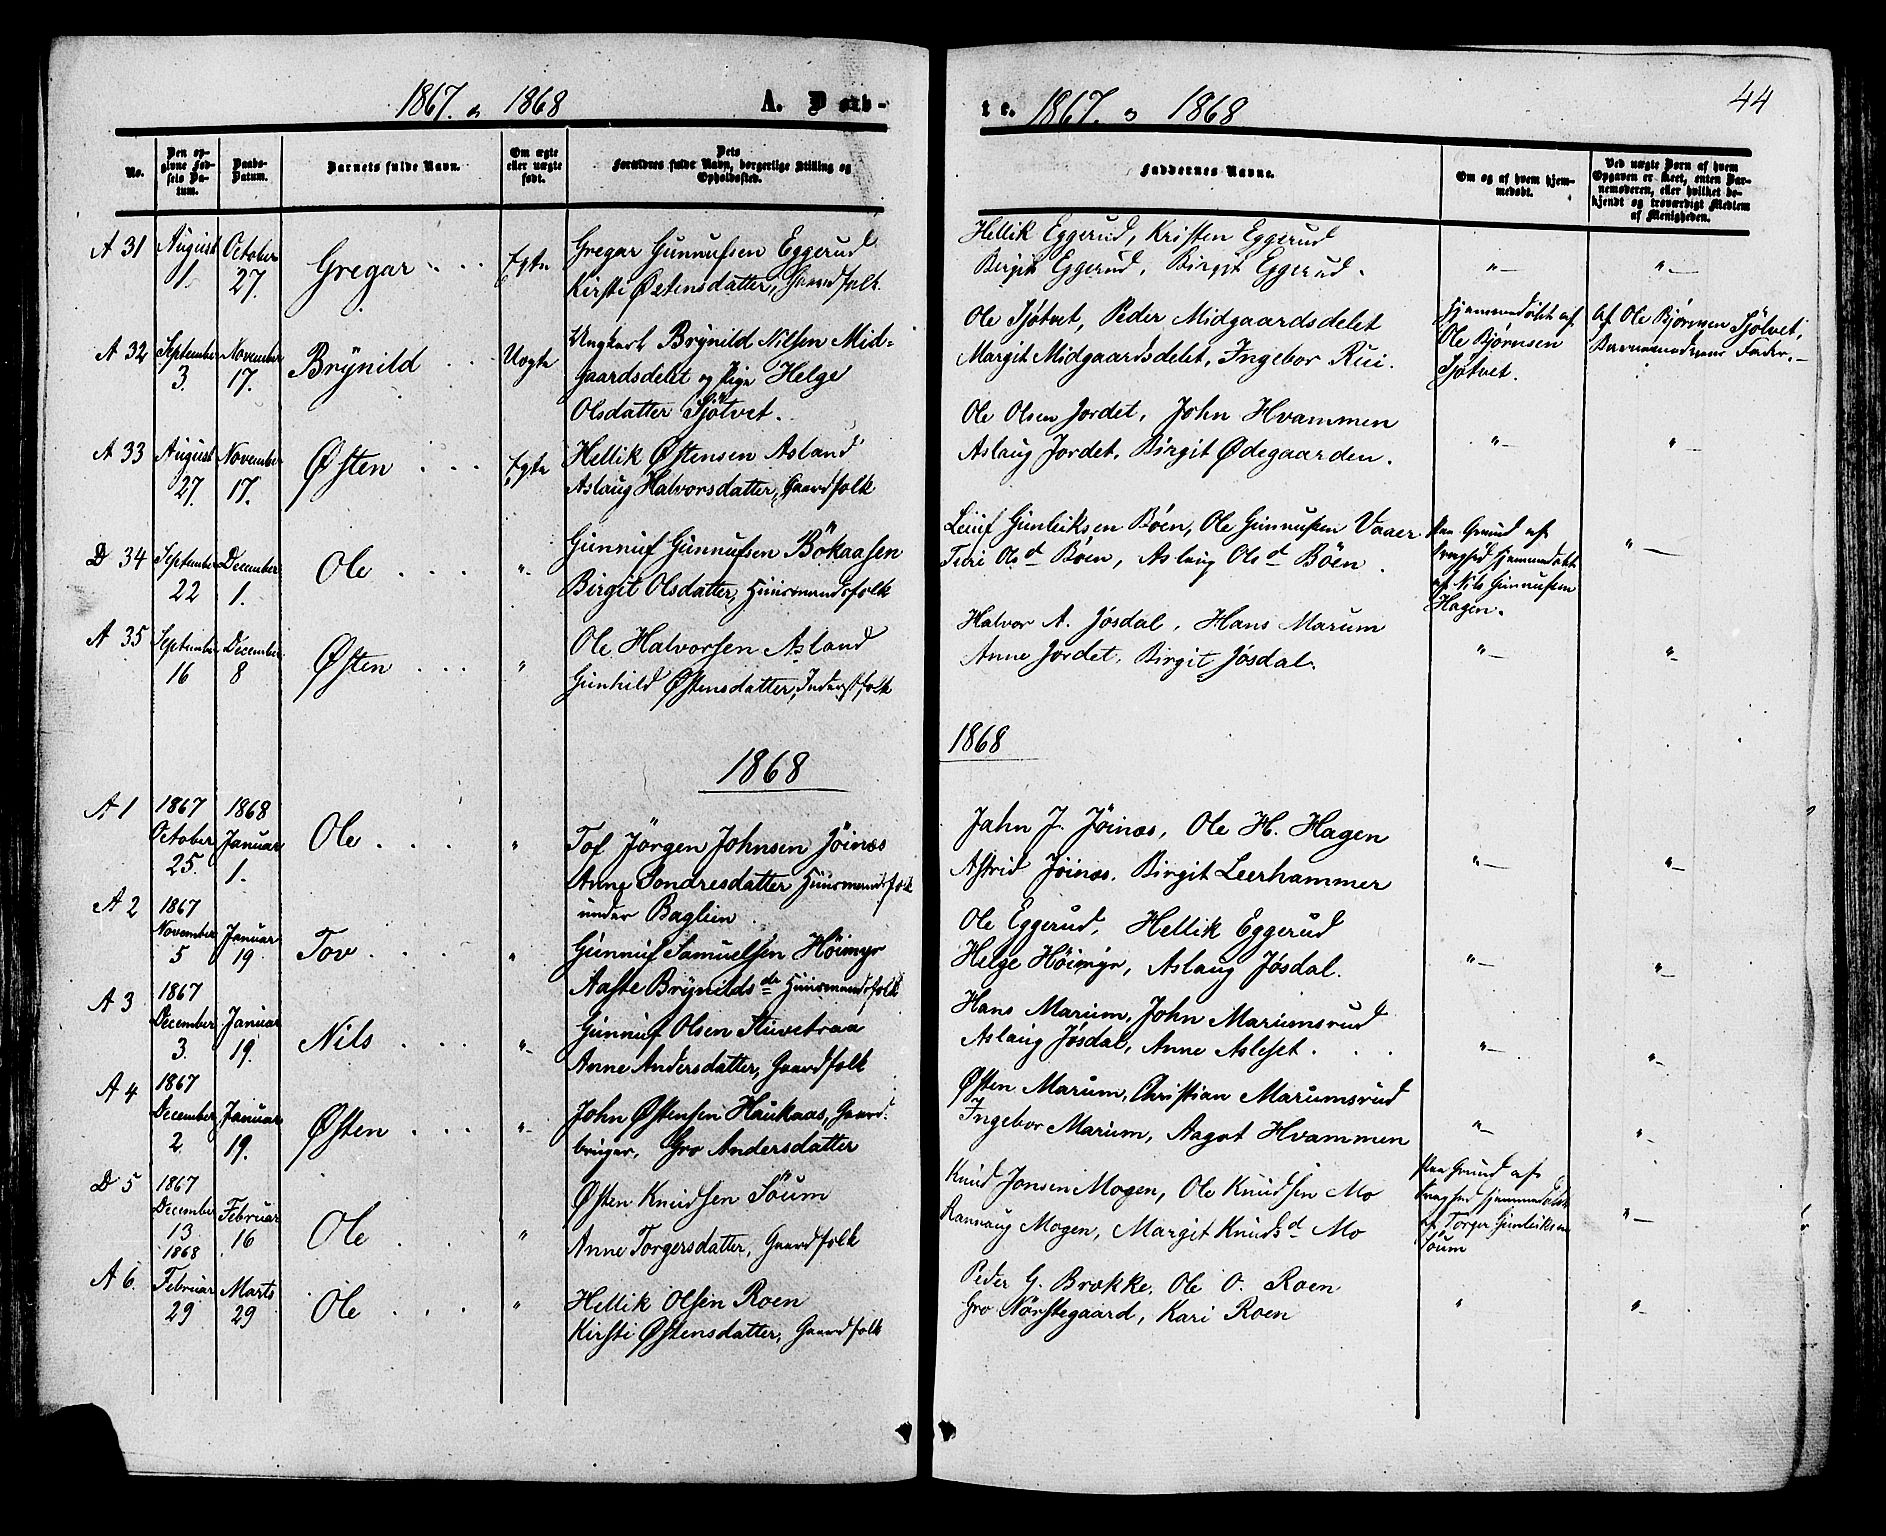 1867. o 1868 A. Døb-
No.
Den op-
givne Fød-
sels Da-
tum.
Daabs-
Datum.
Barnets fulde Navn.
Om ægte
eller uægte
født.
Dets
Forældres fulde Navn, borgerlige Stilling og
Opholdssted.
A 31 August 1. October 27. Gregar Egte
Gregar Gunnufsen Eggerud
Kirsti Østensdatter, Gaardfolk.
A 32 September 3. November 17. Brÿnild Uegte
Ungkarl Brÿnild Nilsen Mid-
gaardsdelet og Pige Helge
Olsdatter Sjøtvet.
A 33 August 27. November 17. Østen Egte
Hellik Østensen Asland
Aslaug Halvorsdatter, Gaardfolk
D 34 September 22 December 1. Ole "
Gunnuf Gunnufsen Bökaasen
Birgit Olsdatter, Huusmandsfolk
A 35 September 16 December 8 Østen "
Ole Halvorsen Asland
Gunhild Østensdatter, Inderstfolk
1868
A 1 1867 October 25. 1868 Januar 1. Ole "
Tof Jörgen Johnsen Jöinæs
Anne Sondresdatter Huusmandsfolk
under Baglien.
A 2 1867 November 5 Januar 19 Tov "
Gunnuf Samuelsen Höimyr
Aaste Brÿnildsdr Huusmandsfolk
A 3 1867 December 3. Januar 19. Nils "
Gunnuf Olsen Stuvetraa
Anne Andersdatter, Gaardfolk
A 4 1867 December 2 Januar 19. Østen "
John Østensen Haukaas, Gaard-
bruger, Gro Andersdatter
D 5 1867 December 13. Februar 16 Ole "
Østen Knudsen Söum
Anne Torgersdatter, Gaardfolk
A 6. 1868 Februar 29 Marts 29 Ole "
Hellik Olsen Roen
Kirsti Østensdatter, Gaardfolk
te. 1867. o 1868 44
Faddernes Navne.
Om og af hvem hjem-
medøbt.
Ved uægte Børn af hvem
Opgaven er skeet, enten Bar-
nemoderen, eller hvilket be-
kjendt og troværdigt Medlem
af Menigheden.
Hellik Eggerud, Kristen Eggerud
Birgit Eggerud, Birgit Eggerud.
Ole Sjøtvet, Peder Midgaardsdelet
Margit Midgaardsdelet, Ingebor Rui.
Hjemmedöbt af
Ole Bjørnsen
Sjøtvet.
Af Ole Bjørnsen Sjøtvet,
Barnemoderens Fader.
Ole Olsen Jordet, John Hvammen
Aslaug Jordet, Birgit Ødegaarden.
Leiuf Gunleiksen Böen, Ole Gunnufsen Vaaer
Turi Olsd Böen, Aslaug Olsd Böen.
Paa Grund af
Svaghed hjemmedöbt
af Nils Gunnufsen
Hagen.
Halvor A. Jøsdal, Hans Marum
Anne Jordet, Birgit Jøsdal.
1868
Jahn J. Jöinæs, Ole H. Hagen
Astrid Jöinæs, Birgit Leerhammer
Ole Eggerud, Hellik Eggerud
Helge Höimyr, Aslaug Jøsdal.
Hans Marum, John Marumsrud
Aslaug Jøsdal, Anne Asleset.
Østen Marum, Christian Marumsrud
Ingebor Marum, Aagot Hvammen
Knud Jonsen Mogen, Ole Knudsen Mo
Rannaug Mogen, Margit Knudsd Mo
Paa Grund af
Svaghed hjemmedöbt
af Torger Gunleiksen
Söum
Peder G. Brække, Ole O. Roen
Gro Nörstegaard, Kari Roen